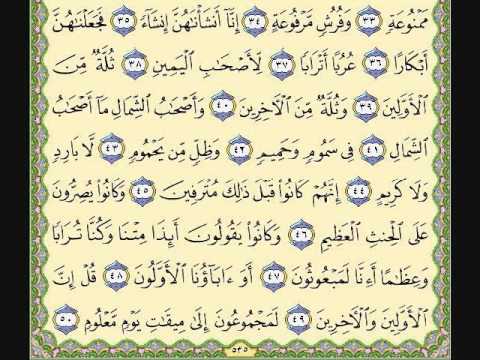 مَمْنُوعَةٍ ٣٣ وَفُرُشٍ مَّرْفُوعَةٍ ٣٤ إِنَّآ أَنشَأْنَٰهُنَّ إِنشَآءً ٣٥ فَجَعَلْنَٰهُنَّ
أَبْكَارًا ٣٦ عُرُبًا أَتْرَابًا ٣٧ لِّأَصْحَٰبِ ٱلْيَمِينِ ٣٨ ثُلَّةٌ مِّنَ
ٱلْأَوَّلِينَ ٣٩ وَثُلَّةٌ مِّنَ ٱلْآخِرِينَ ٤٠ وَأَصْحَٰبُ ٱلشِّمَالِ مَآ أَصْحَٰبُ
ٱلشِّمَالِ ٤١ فِى سَمُومٍ وَحَمِيمٍ ٤٢ وَظِلٍّ مِّن يَحْمُومٍ ٤٣ لَّا بَارِدٍ
وَلَا كَرِيمٍ ٤٤ إِنَّهُمْ كَانُوا۟ قَبْلَ ذَٰلِكَ مُتْرَفِينَ ٤٥ وَكَانُوا۟ يُصِرُّونَ
عَلَى ٱلْحِنثِ ٱلْعَظِيمِ ٤٦ وَكَانُوا۟ يَقُولُونَ أَئِذَا مِتْنَا وَكُنَّا تُرَابًا
وَعِظَٰمًا أَءِنَّا لَمَبْعُوثُونَ ٤٧ أَوَ ءَابَآؤُنَا ٱلْأَوَّلُونَ ٤٨ قُلْ إِنَّ
ٱلْأَوَّلِينَ وَٱلْآخِرِينَ ٤٩ لَمَجْمُوعُونَ إِلَىٰ مِيقَٰتِ يَوْمٍ مَّعْلُومٍ ٥٠
٥٣٥